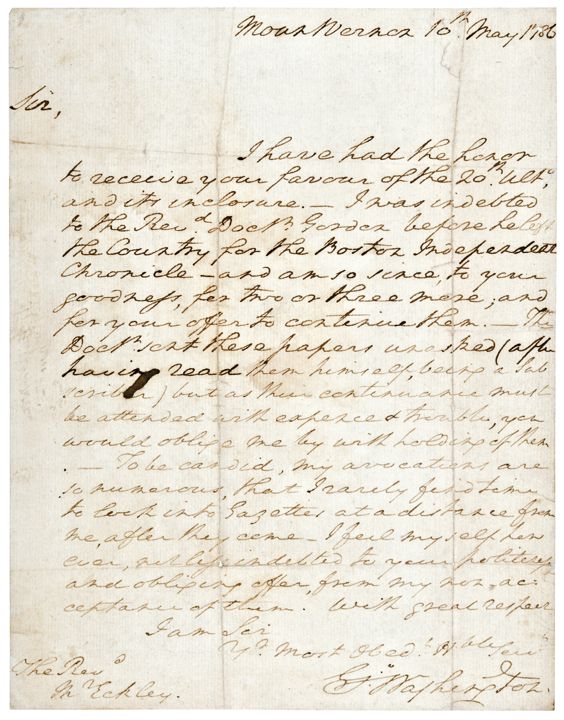 Mount Vernon 10th. May 1786
Sir,
I have had the honor
to receive your favour of the 20th. Ulto.
and its inclosure. — I was indebted
to the Revd. Doctr. Gordon before he left
the Country for the Boston Independent
Chronicle — and am so since, to your
goodness, for two or three more; and
for your offer to continue them. — The
Doctr. sent these papers unasked (after
having read them himself, being a sub
scriber) but as their continuance must
be attended with expence & trouble, you
would oblige me by with holding of them
. — To be candid, my avocations are
so numerous, that I rarely find time
to look into Gazettes at a distance from
me, after they come — I feel my self how
ever, not less indebted to your politeness
and obliging offer, from my non-ac-
ceptance of them. With great respect
I am Sir
Yr. Most Obedt. Hble Servt
Go. Washington.
The Revd.
Mr. Eckley.